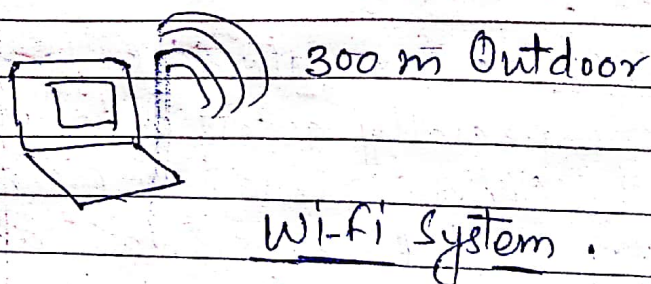 300 m Outdoor
Wi-Fi System.